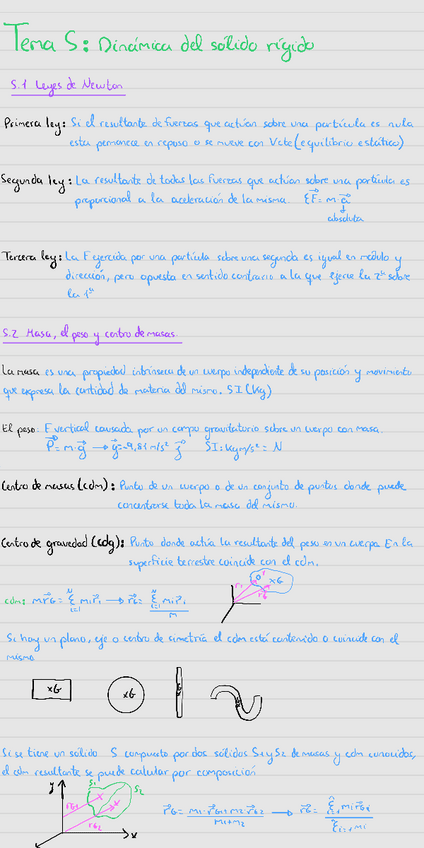 Tema 5: Dinámica del sólido rígido
5.1 Leyes de Newton
Primera ley: Si el resultante de fuerzas que actúan sobre una partícula es nula
esta permanece en reposo o se mueve con V cte (equilibrio estático)
Segunda ley: La resultante de todas las fuerzas que actúan sobre una partícula es
proporcional a la aceleración de la misma. ΣF⃗ = m·a⃗
absoluta
Tercera ley: La F ejercida por una partícula sobre una segunda es igual en módulo y
dirección, pero opuesta en sentido contrario a la que ejerce la 2ª sobre
la 1ª
5.2 Masa, el peso y centro de masas.
La masa es una propiedad intrínseca de un cuerpo independiente de su posición y movimiento
que expresa la cantidad de materia del mismo. SI (kg)
El peso: F vertical causada por un campo gravitatorio sobre un cuerpo con masa.
P⃗ = m·g⃗ → g⃗=-9,81 m/s² j⃗ SI: kg m/s² = N
Centro de masas (cdm): Punto de un cuerpo o de un conjunto de puntos donde puede
concentrarse toda la masa del mismo.
Centro de gravedad (cdg): Punto donde actúa la resultante del peso en un cuerpo. En la
superficie terrestre coincide con el cdm.
cdm: m r⃗G = Σ mi r⃗i → r⃗G = Σ mi r⃗i / m
Si hay un plano, eje o centro de simetría el cdm está contenido o coincide con el
mismo
xG xG
Si se tiene un sólido S compuesto por dos sólidos S1 y S2 de masas y cdm conocidos,
el cdm resultante se puede calcular por composición
y S1 S2
rG1 rG2 x
r⃗G = m1·r⃗G1+m2·r⃗G2 / m1+m2 → r⃗G = Σ mi r⃗Gi / Σ mi